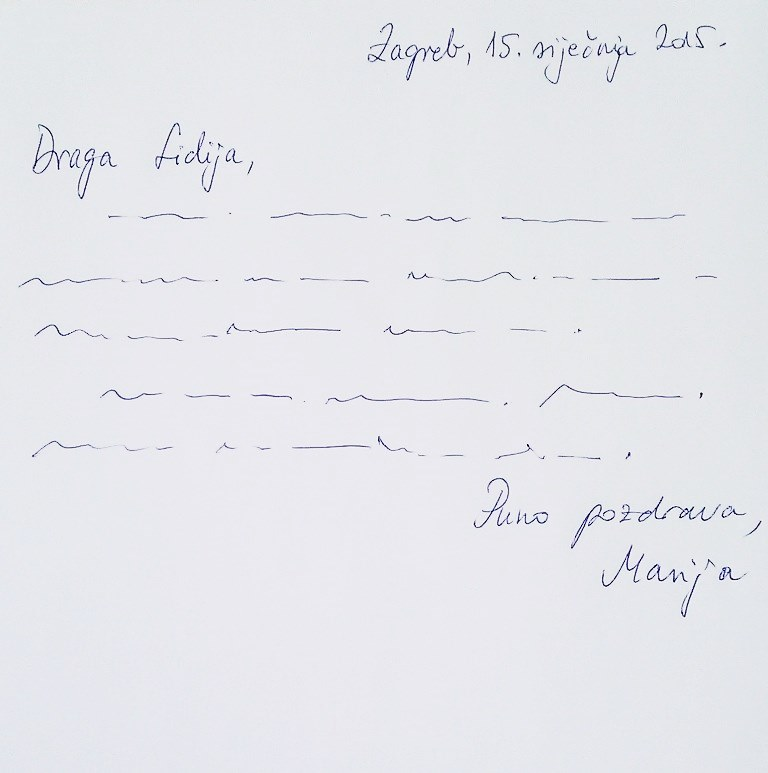 Zagreb, 15. siječnja 2015.
Draga Lidija,
Puno pozdrava,
Marija